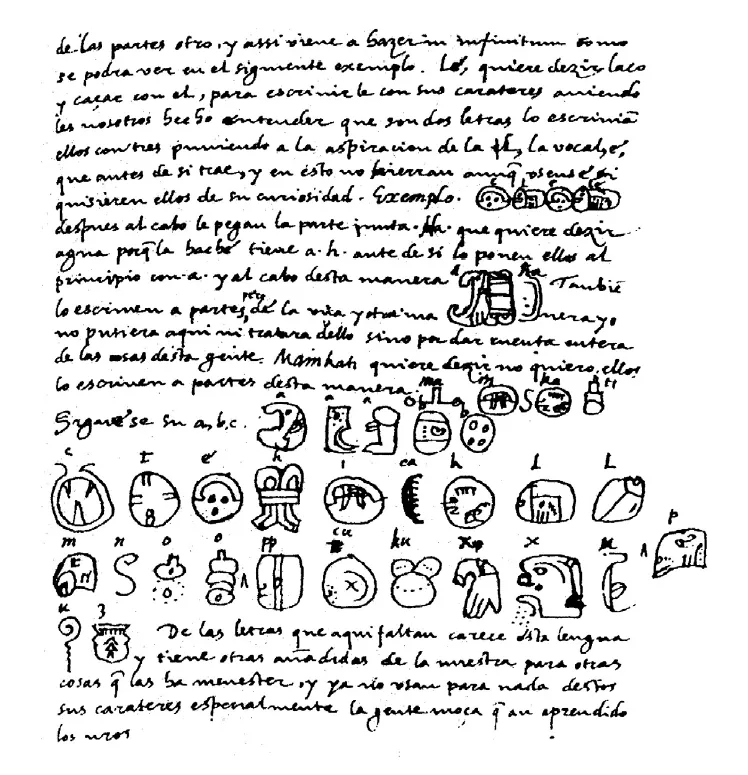 de las partes otro, y assi viene a hazer in infinitum como
se podra ver en el siguiente exemplo. Lé, quiere dezir laço
y caçar con el, para escrivir le con sus carateres aviendo
les nosotros hecho entender que son dos letras lo escrivian
ellos con tres puniendo a la aspiracion de la l, la vocal, é,
que antes de si trae, y en esto no hierran aunq̃ usense si
quisieren ellos de su curiosidad. Exemplo. e l e lé
despues al cabo le pegan la parte junta. Ha. que quiere dezir
agua porq̃ la haché tiene a.h. ante de si lo ponen ellos al
principio con a. y al cabo desta manera a ha Tanbiē
lo escriven a partes, pero de la una y otra ma nera yo
no pusiera aqui ni tratara dello sino por dar cuenta entera
de las cosas desta gente. Mainkati quiere dezir no quiero, ellos
lo escriven a partes desta manera ma i n ka ti
Siguese su a, b, c. a a a b b
c t é h i ca k l l
m n o o pp cu ku x x u p
u z De las letras que aqui faltan carece esta lengua
y tiene otras añadidas de la nuestra para otras
cosas q̃ las ha menester, y ya no usan para nada destos
sus carateres especialmente la gente moça q̃ an aprendido
los nros